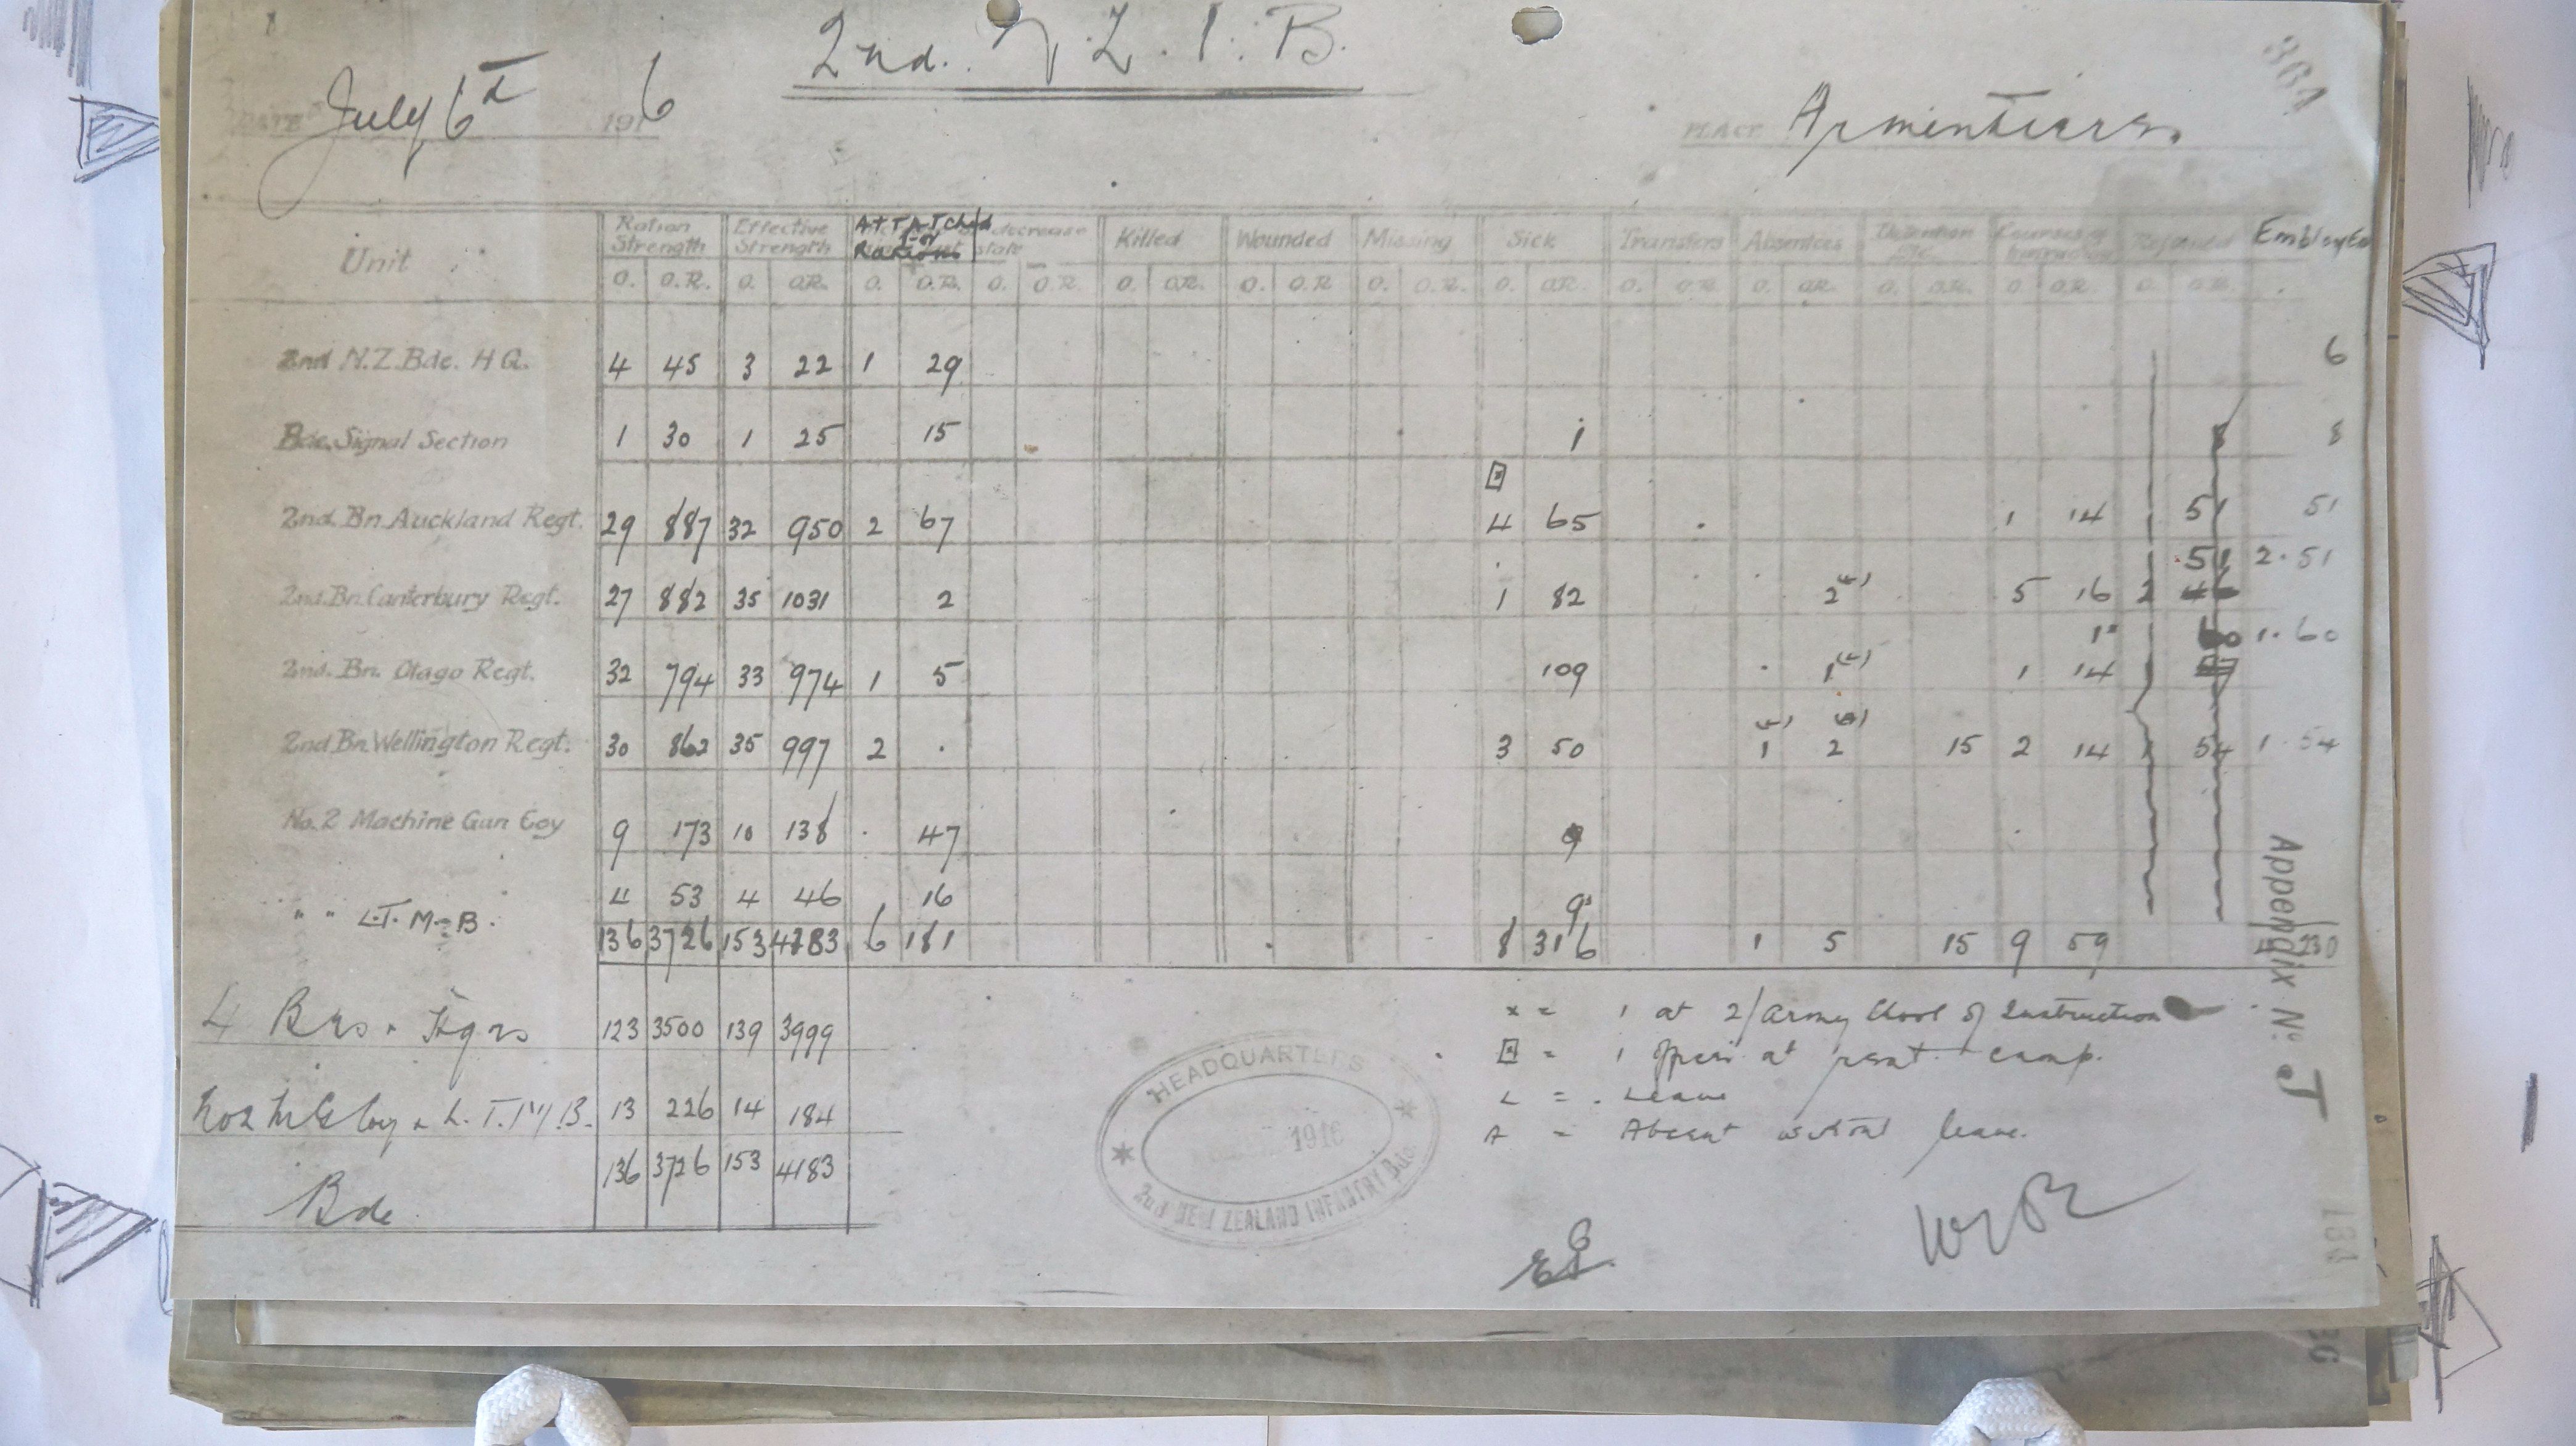 2nd. N. Z. I. B.
364
DATE July 6th 1916
PLACE Armentiers.
Unit Ration Strength Effective Strength ATTATChed for Rations decrease state Killed Wounded Missing Sick Transfers Absentees Detention Etc. Courses of Instruction Rejoined Employed
O. O.R. O. O.R. O. O.R. O. O.R. O. O.R. O. O.R. O. O.R. O. O.R. O. O.R. O. O.R. O. O.R. O. O.R. O. O.R.
2nd N.Z. Bde. H Q. 4 45 3 22 1 29 6
Bde. Signal Section 1 30 1 25 15 1 8 8
2nd. Bn. Auckland Regt. 29 887 32 950 2 67 4 65 1 14 51 51
51 2. 51
2nd. Bn. Canterbury Regt. 27 882 35 1031 2 1 82 2 (L) 5 16 2 46
1x 60 1. 60
2nd. Bn. Otago Regt. 32 794 33 974 1 5 109 1 (L) 1 14
2nd Bn. Wellington Regt. 30 862 35 997 2 . 3 50 1 (L) 2 (A) 15 2 14 1 54 1. 54
No. 2 Machine Gun Coy 9 173 10 138 . 47 9
" " L.T. M. B. 4 53 4 46 16 9
136 3726 153 4183 6 181 8 316 1 5 15 9 59 4 230
4 Bns + Hqrs 123 3500 139 3999
No 2 M G Coy + L. T. M. B. 13 226 14 184
Bde 136 3726 153 4183
x = 1 at 2/Army School of Instruction
⊡ = 1 officer at rest camp.
L = . Leave
A = Absent without leave.
HEADQUARTERS
1916
2nd NEW ZEALAND INFANTRY Bde.
Appendix No. J
181